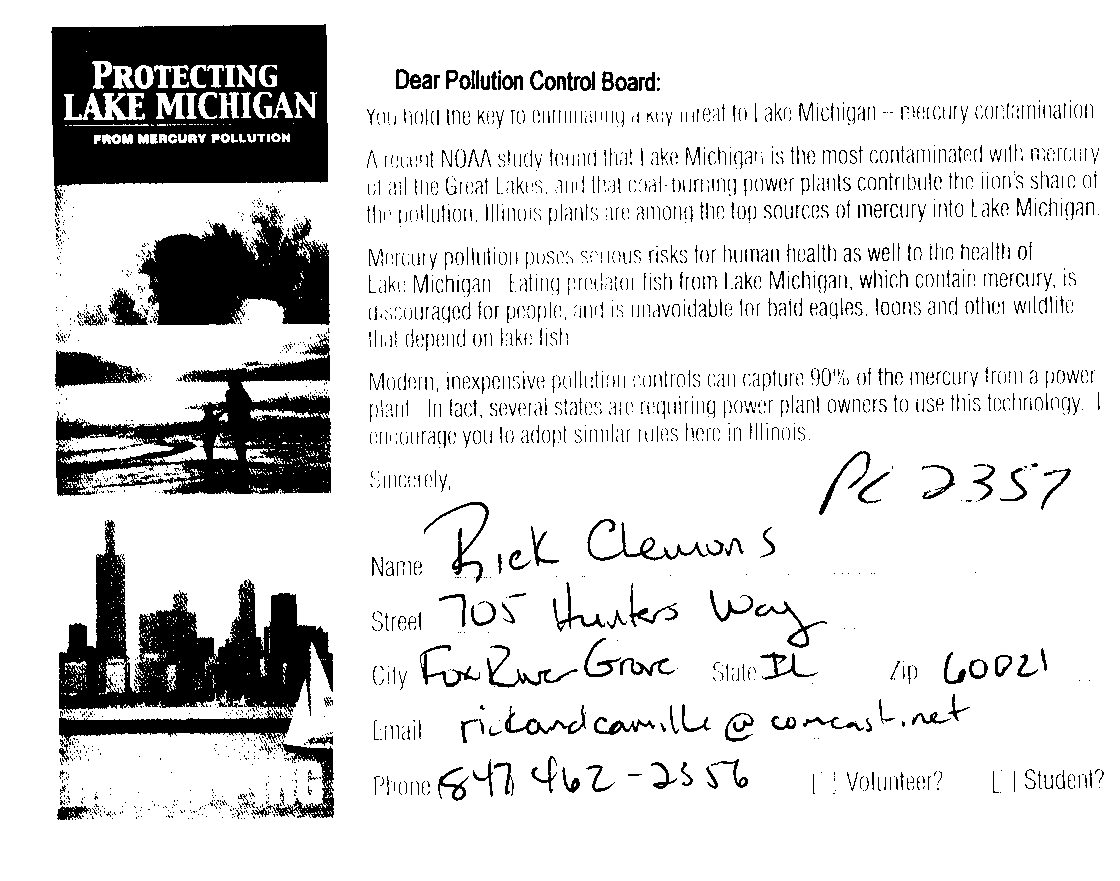 PROTECTING
LAKE MICHIGAN
FROM MERCURY POLLUTION
Dear Pollution Control Board:
You hold the key to eliminating a key threat to Lake Michigan – mercury contamination
A recent NOAA study found that Lake Michigan is the most contaminated with mercury
of all the Great Lakes, and that coal-burning power plants contribute the lion's share of
the pollution. Illinois plants are among the top sources of mercury into Lake Michigan.
Mercury pollution poses serious risks for human health as well to the health of
Lake Michigan. Eating predator fish from Lake Michigan, which contain mercury, is
discouraged for people, and is unavoidable for bald eagles, loons and other wildlife
that depend on lake fish
Modern, inexpensive pollution controls can capture 90% of the mercury from a power
plant. In fact, several states are requiring power plant owners to use this technology. I
encourage you to adopt similar rules here in Illinois.
Sincerely,
PC 2357
Name Rick Clemons
Street 705 Hunters Way
City Fox River Grove State IL Zip 60021
Email rickandcamille@comcast.net
Phone (847 462-2356 [ ] Volunteer? [ ] Student?